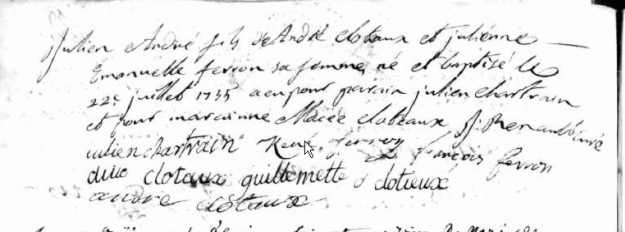 Julien André fils de André clotaux et julienne
Emanuelle ferron sa femme, né et baptisé le
22e juillet 1735 a eu pour parain julien chartrain
et pour marainne Marie cloteaux J: Renault curé
julien chartrain René ferron francois ferron
clotaux guillemette clotieux
andre clotaux